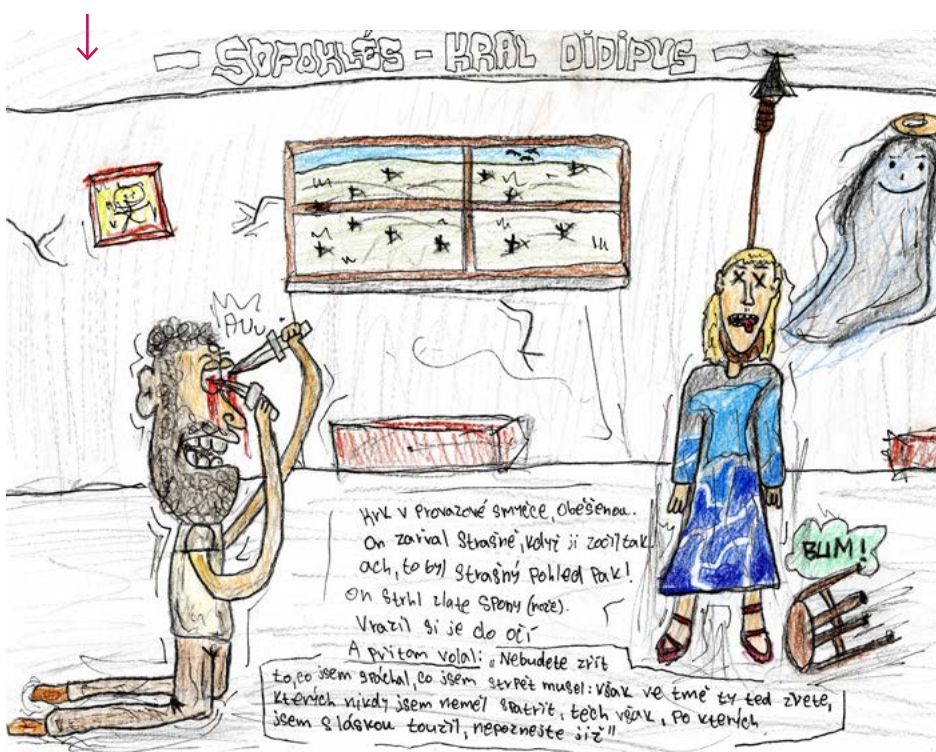 SOFOKLÉS - KRÁL OIDIPUS
AUU
Krk v provazové smyčce, oběšenou.
On zařval strašně, když ji zočil tak
ach, to byl strašný pohled pak!
On strhl zlaté spony (nože).
Vrazil si je do očí
A přitom volal: „Nebudete zřít
to, co jsem spáchal, co jsem strpět musel: však ve tmě ty teď zřete,
kterých nikdy jsem neměl spatřit, těch však, po kterých
jsem s láskou toužil, nepoznejte již"
BUM!